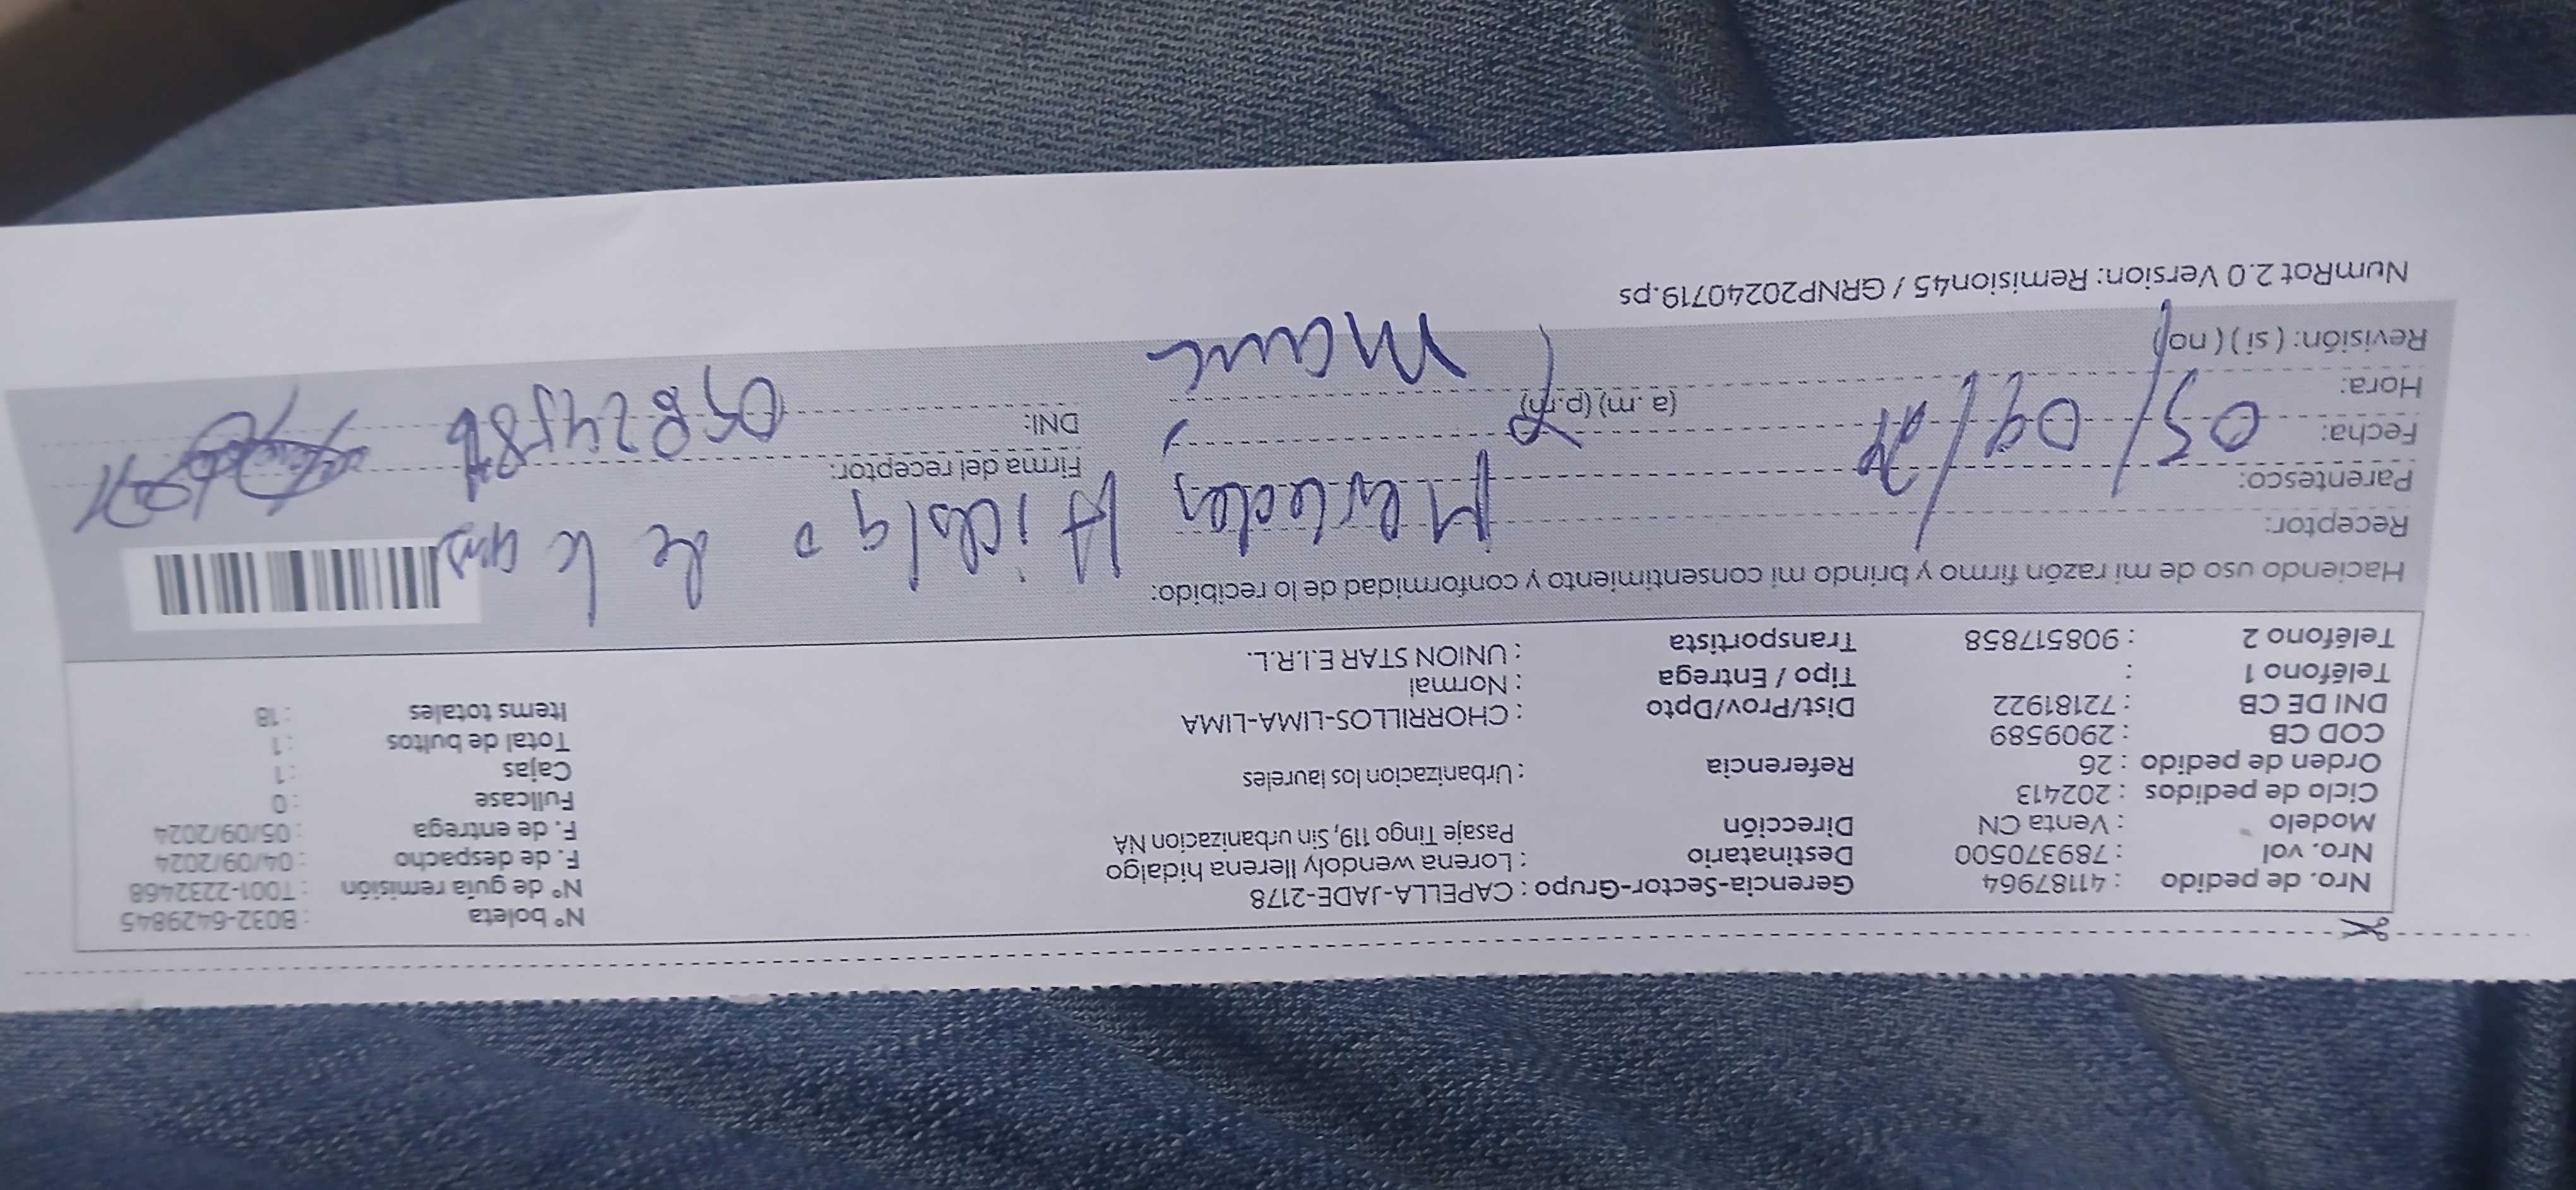 Nro. de pedido : 41187964 Gerencia-Sector-Grupo : CAPELLA-JADE-2178 N° boleta : B032-6429845
Nro. vol : 789370500 Destinatario : Lorena wendoly llerena hidalgo N° de guía remisión : T001-2232468
Modelo : Venta CN Dirección Pasaje Tingo 119, Sin urbanizacion NA F. de despacho : 04/09/2024
Ciclo de pedidos : 202413 F. de entrega : 05/09/2024
Orden de pedido : 26 Referencia : Urbanizacion los laureles Fullcase : 0
COD CB : 2909589 Cajas : 1
DNI DE CB : 72181922 Dist/Prov/Dpto : CHORRILLOS-LIMA-LIMA Total de bultos : 1
Teléfono 1 : Tipo / Entrega : Normal Items totales : 18
Teléfono 2 : 908517858 Transportista : UNION STAR E.I.R.L.
Haciendo uso de mi razón firmo y brindo mi consentimiento y conformidad de lo recibido:
Receptor: Mercedes Hidalgo de la
Parentesco: Firma del receptor:
Fecha: 05/09/ DNI: 09824586
Hora: (a .m) (p.m)
Revisión: ( si ) ( no )
NumRot 2.0 Version: Remision45 / GRNP20240719.ps